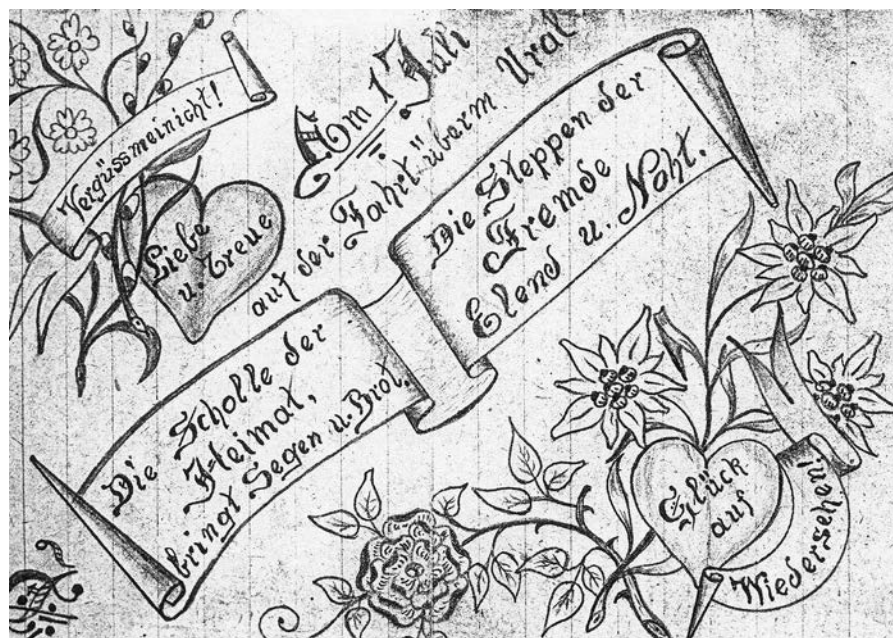 Vergüssmeinicht!
Liebe
u. Treue
Am 17 Juli
auf der Fahrt überm Ural
Die Scholle der
Heimat,
bringt Segen u. Brot.
Die Steppen der
Fremde
Elend u. Noht.
Glück
auf
Wiedersehen!